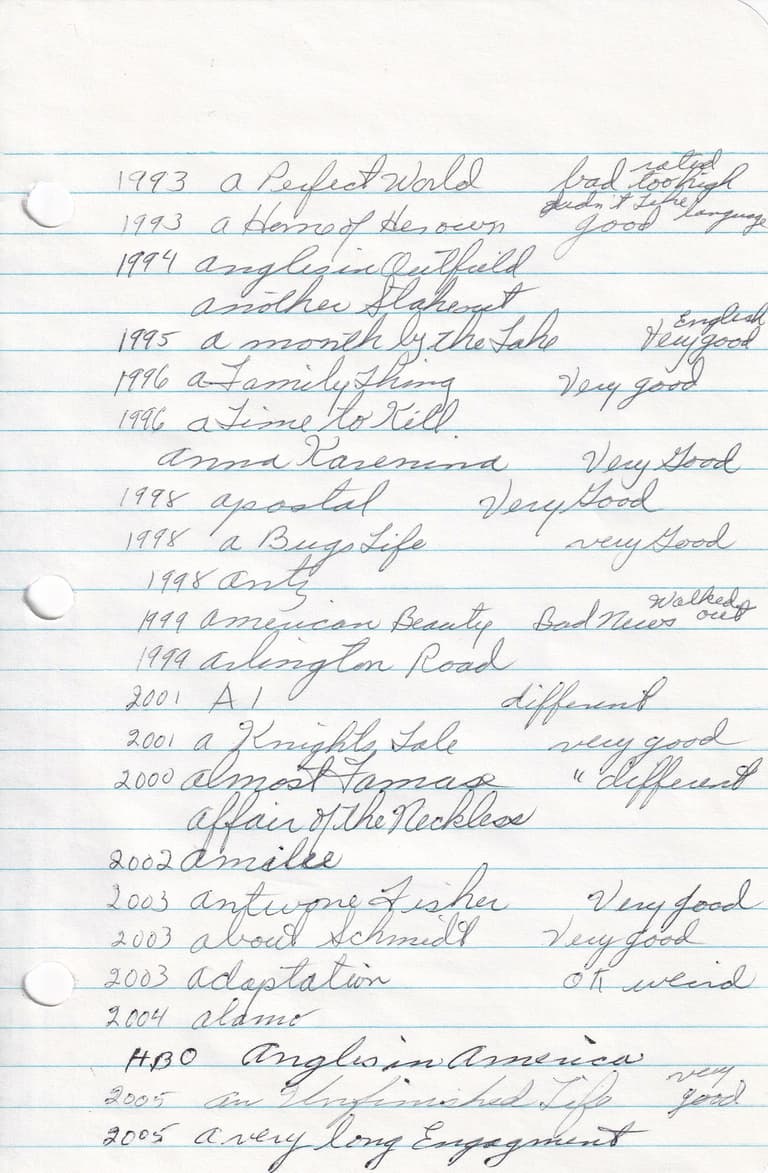 1993 a Perfect World bad rated too high
1993 a Home of Her own good didn't like language
1994 angles in Outfield
another Stakeout
1995 a month by the Lake Very good English
1996 a Family Thing Very good
1996 a Time to Kill
anna Karenina Very Good
1998 apostal Very Good
1998 a Bugs Life very Good
1998 antz
1999 american Beauty Bad News Walked out
1999 arlington Road
2001 AI different
2001 a Knights Tale very good
2000 almost Famase " different
affair of the Neckless
2002 amilee
2003 antwone Fisher Very good
2003 about Schmidt Very good
2003 adaptation OK weird
2004 alamo
HBO angles in america
2005 an Unfinished Life very good
2005 a very long Engagment